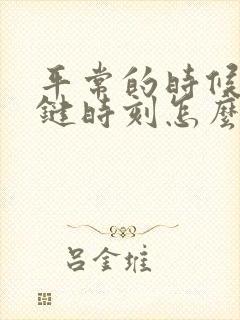 平常的時候
鍵時刻怎麼
吕金堆